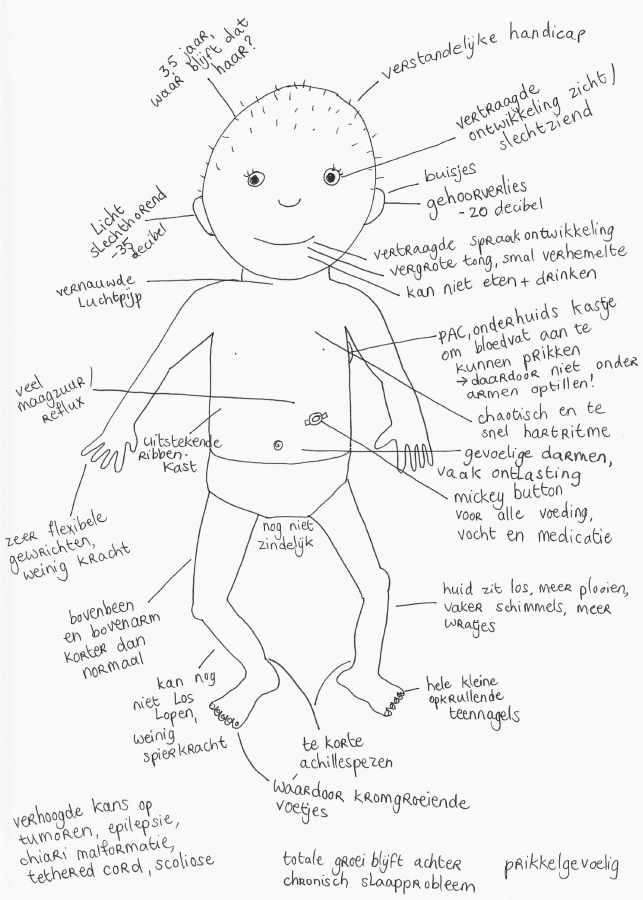 3,5 jaar,
waar blijft dat
haar?
verstandelijke handicap
vertraagde
ontwikkeling zicht/
slechtziend
buisjes
gehoorverlies
-20 decibel
Licht
slechthorend
-35
decibel
vertraagde spraakontwikkeling
vergrote tong, smal verhemelte
kan niet eten + drinken
vernauwde
luchtpijp
PAC, onderhuids kastje
om bloedvat aan te
kunnen prikken
→ daardoor niet onder
armen optillen!
veel
maagzuur/
reflux
chaotisch en te
snel hartritme
uitstekende
ribben-
kast
gevoelige darmen,
vaak ontlasting
mickey button
voor alle voeding,
vocht en medicatie
zeer flexibele
gewrichten,
weinig kracht
nog niet
zindelijk
huid zit los, meer plooien,
vaker schimmels, meer
wratjes
bovenbeen
en bovenarm
korter dan
normaal
kan nog
niet los
lopen,
weinig
spierkracht
hele kleine
opkrullende
teennagels
te korte
achillespezen
waardoor kromgroeiende
voetjes
verhoogde kans op
tumoren, epilepsie,
chiari malformatie,
tethered cord, scoliose
totale groei blijft achter
chronisch slaapprobleem
prikkelgevoelig